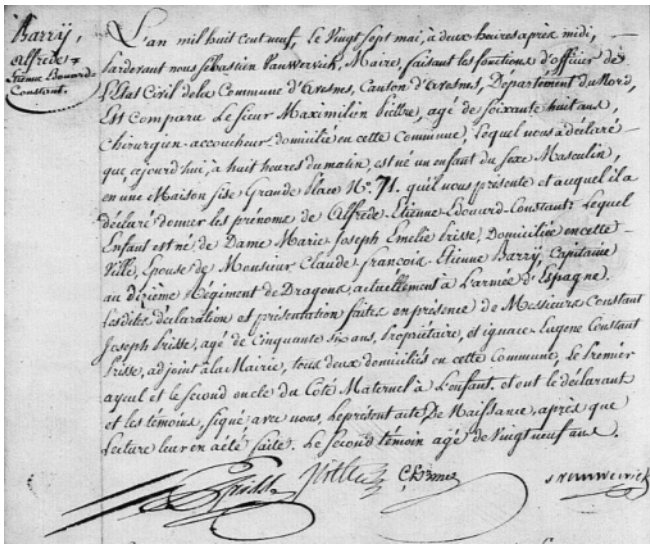 Barrÿ,
Alfrede-
Etienne Edouard-
Constant.
L'an mil huit cent neuf, le Vingt Sept mai, à deux heures après midi,
Pardevant nous Sébastien Vanwervick, Maire, faisant les fonctions d'officier de
L'Etat Civil de la Commune d'Avesnes, Canton d'Avesnes, Département du Nord,
Est Comparu Le Sieur Maximilien agé de soixante huit ans,
Chirurgien-accoucheur, domicilié en cette Commune, Lequel nous a déclaré
que, ajourd'hui, à huit heures du matin, est né un enfant du sexe Masculin,
en une Maison sise Grande Place N°. 71. qu'il nous présente et auquel il a
déclaré donner les prénoms de Alfrede-Etienne-Edouard-Constant; Lequel
Enfant est né de Dame Marie Joseph Emélie Prisse, Domiciliée en cette
Ville, Epouse de Monsieur Claude-françois-Etienne Barrÿ, Capitaine
au dixième Régiment de Dragons, actuellement à L'armée d'Espagne.
Lesdites déclaration et présentation faites en présence de Messieurs Constant
Joseph Prisse, agé de Cinquante six ans, Propriétaire, et ignace-Eugene Constant
Prisse, adjoint à la Mairie, tous deux domiciliés en cette Commune, Le Premier
ayeul et le second oncle du Coté Maternel à L'enfant. et ont le déclarant
et les témoins, signé avec nous, le présent acte De Naissance, après que
Lecture leur en a été faite. Le Second témoin agé de Vingt neuf ans.
Prisse